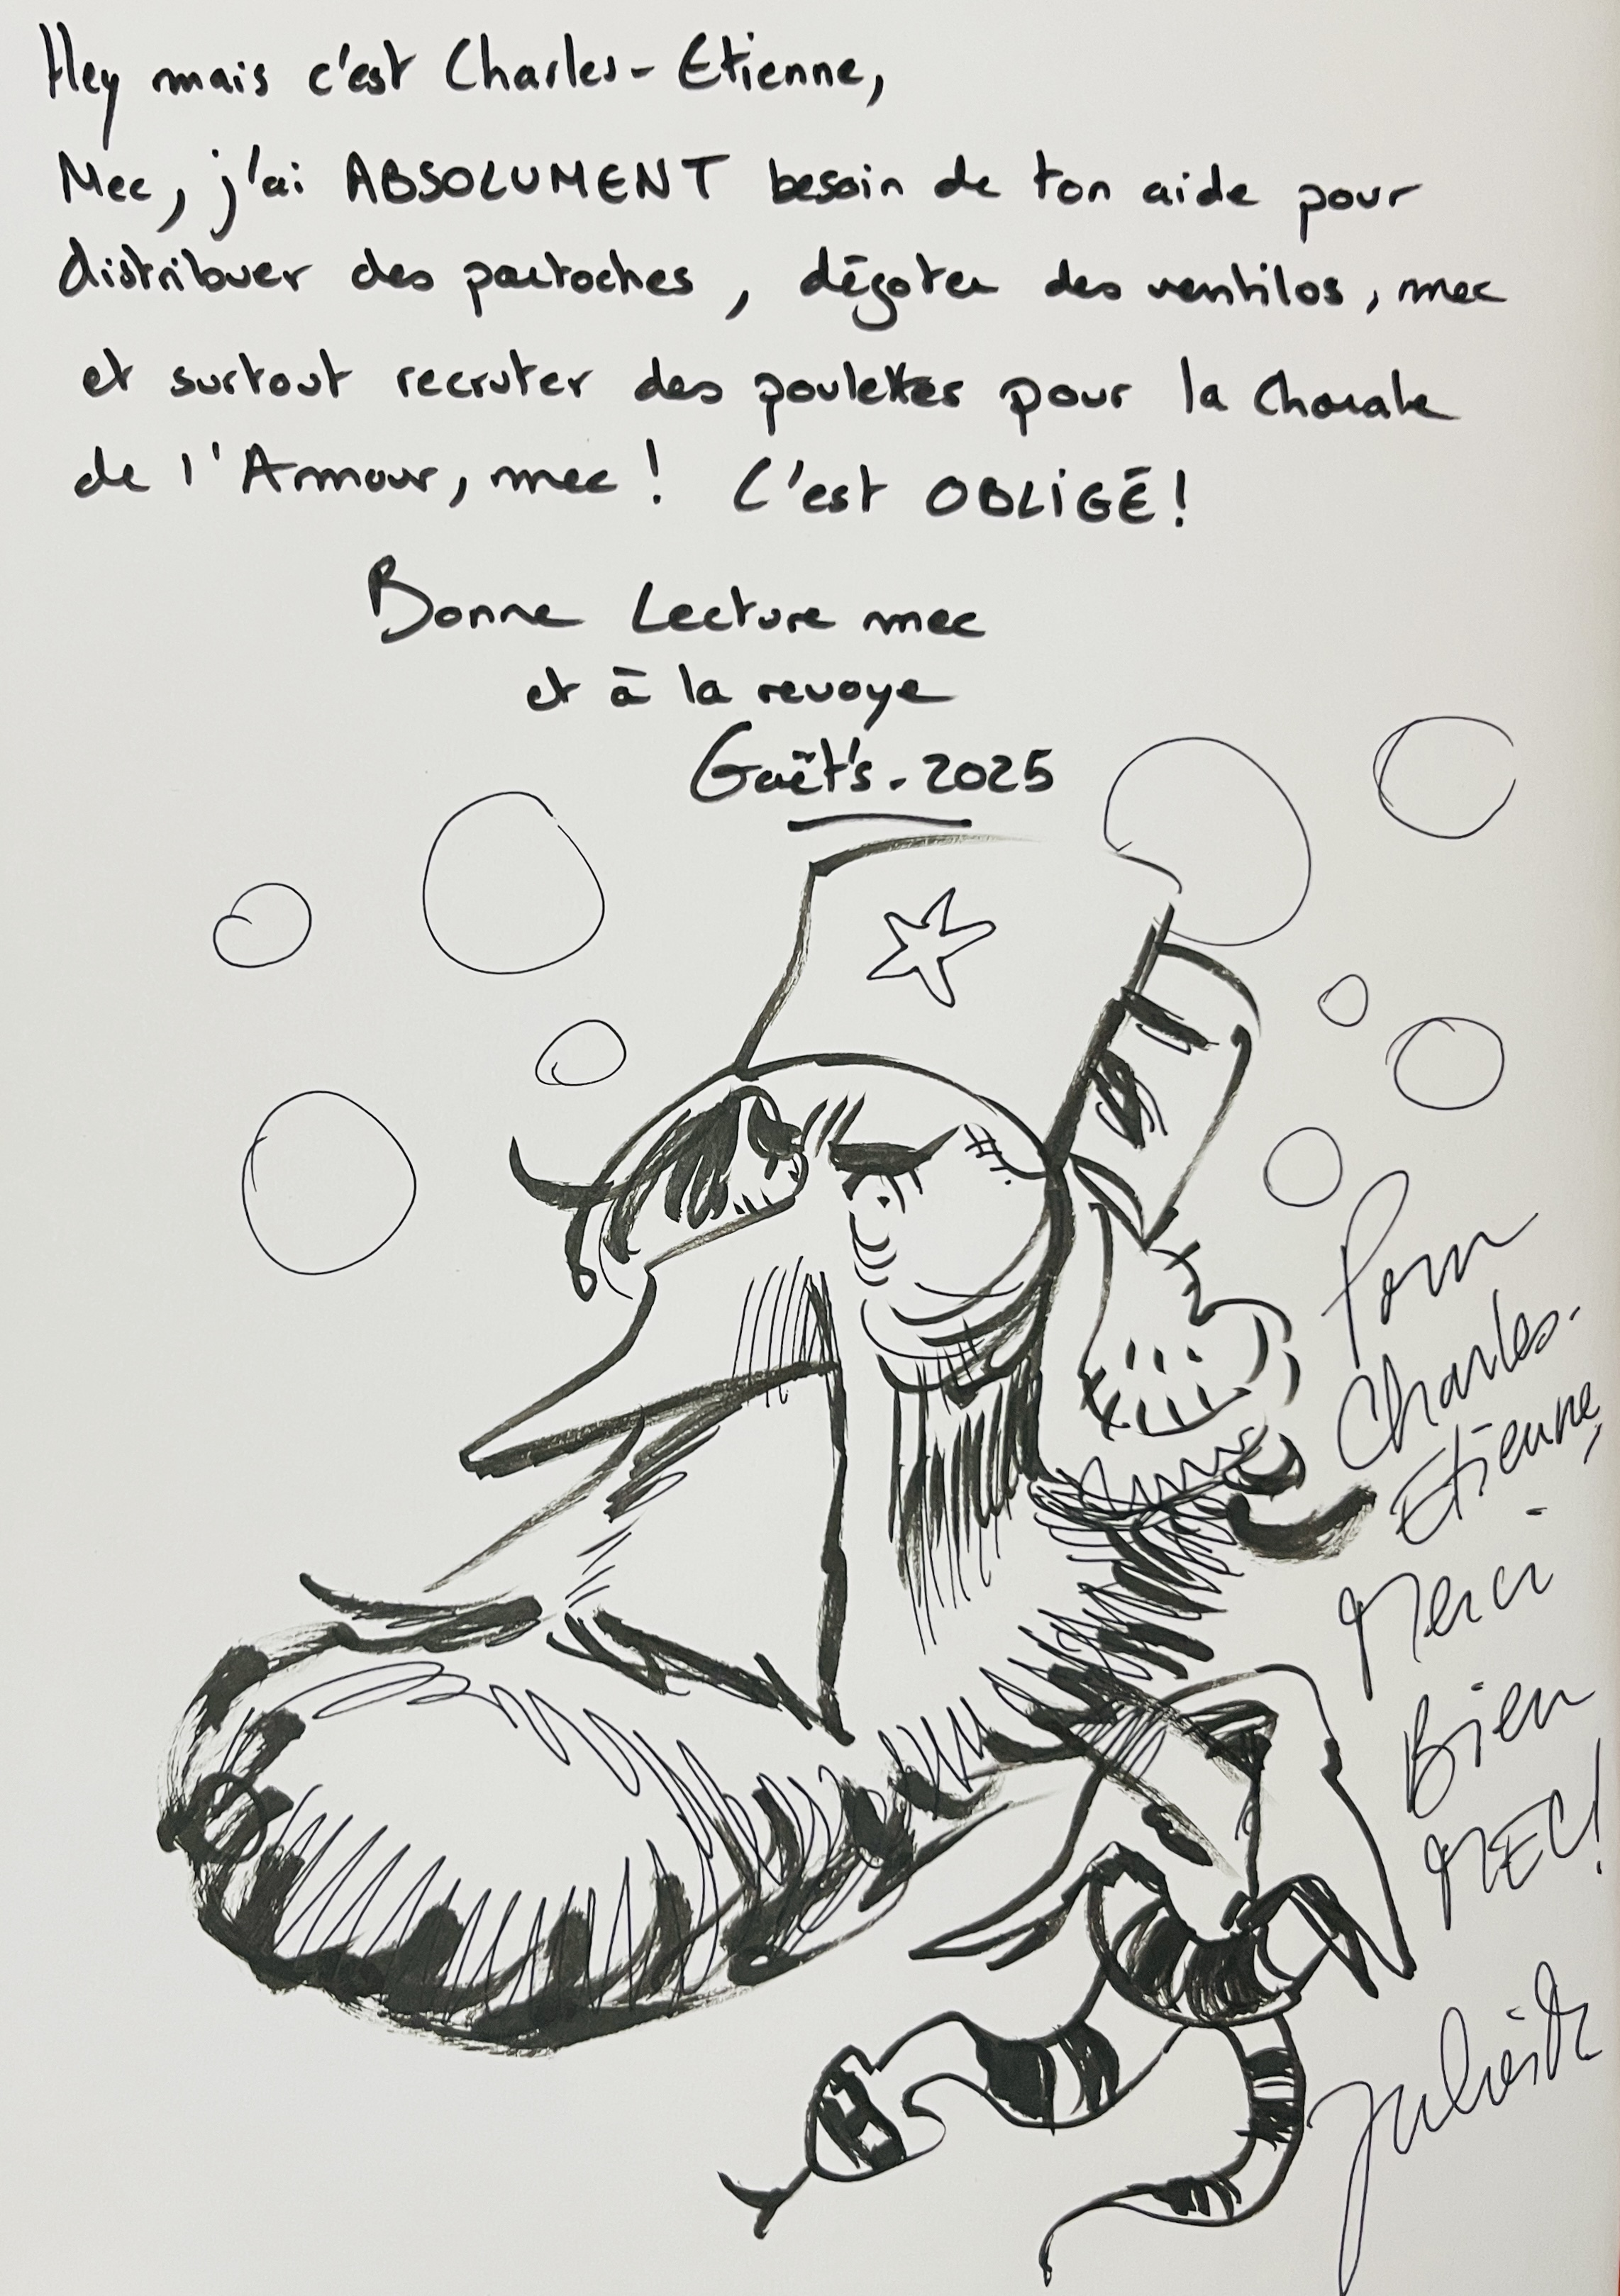 Hey mais c'est Charles-Etienne,
Mec, j'ai ABSOLUMENT besoin de ton aide pour
distribuer des partoches, dégoter des ventilos, mec
et surtout recruter des poulettes pour la chorale
de l'Amour, mec ! C'est OBLIGÉ !
Bonne Lecture mec
et à la revoye
Gaët's - 2025
Pour
Charles-
Etienne,
Merci
Bien
MEC!